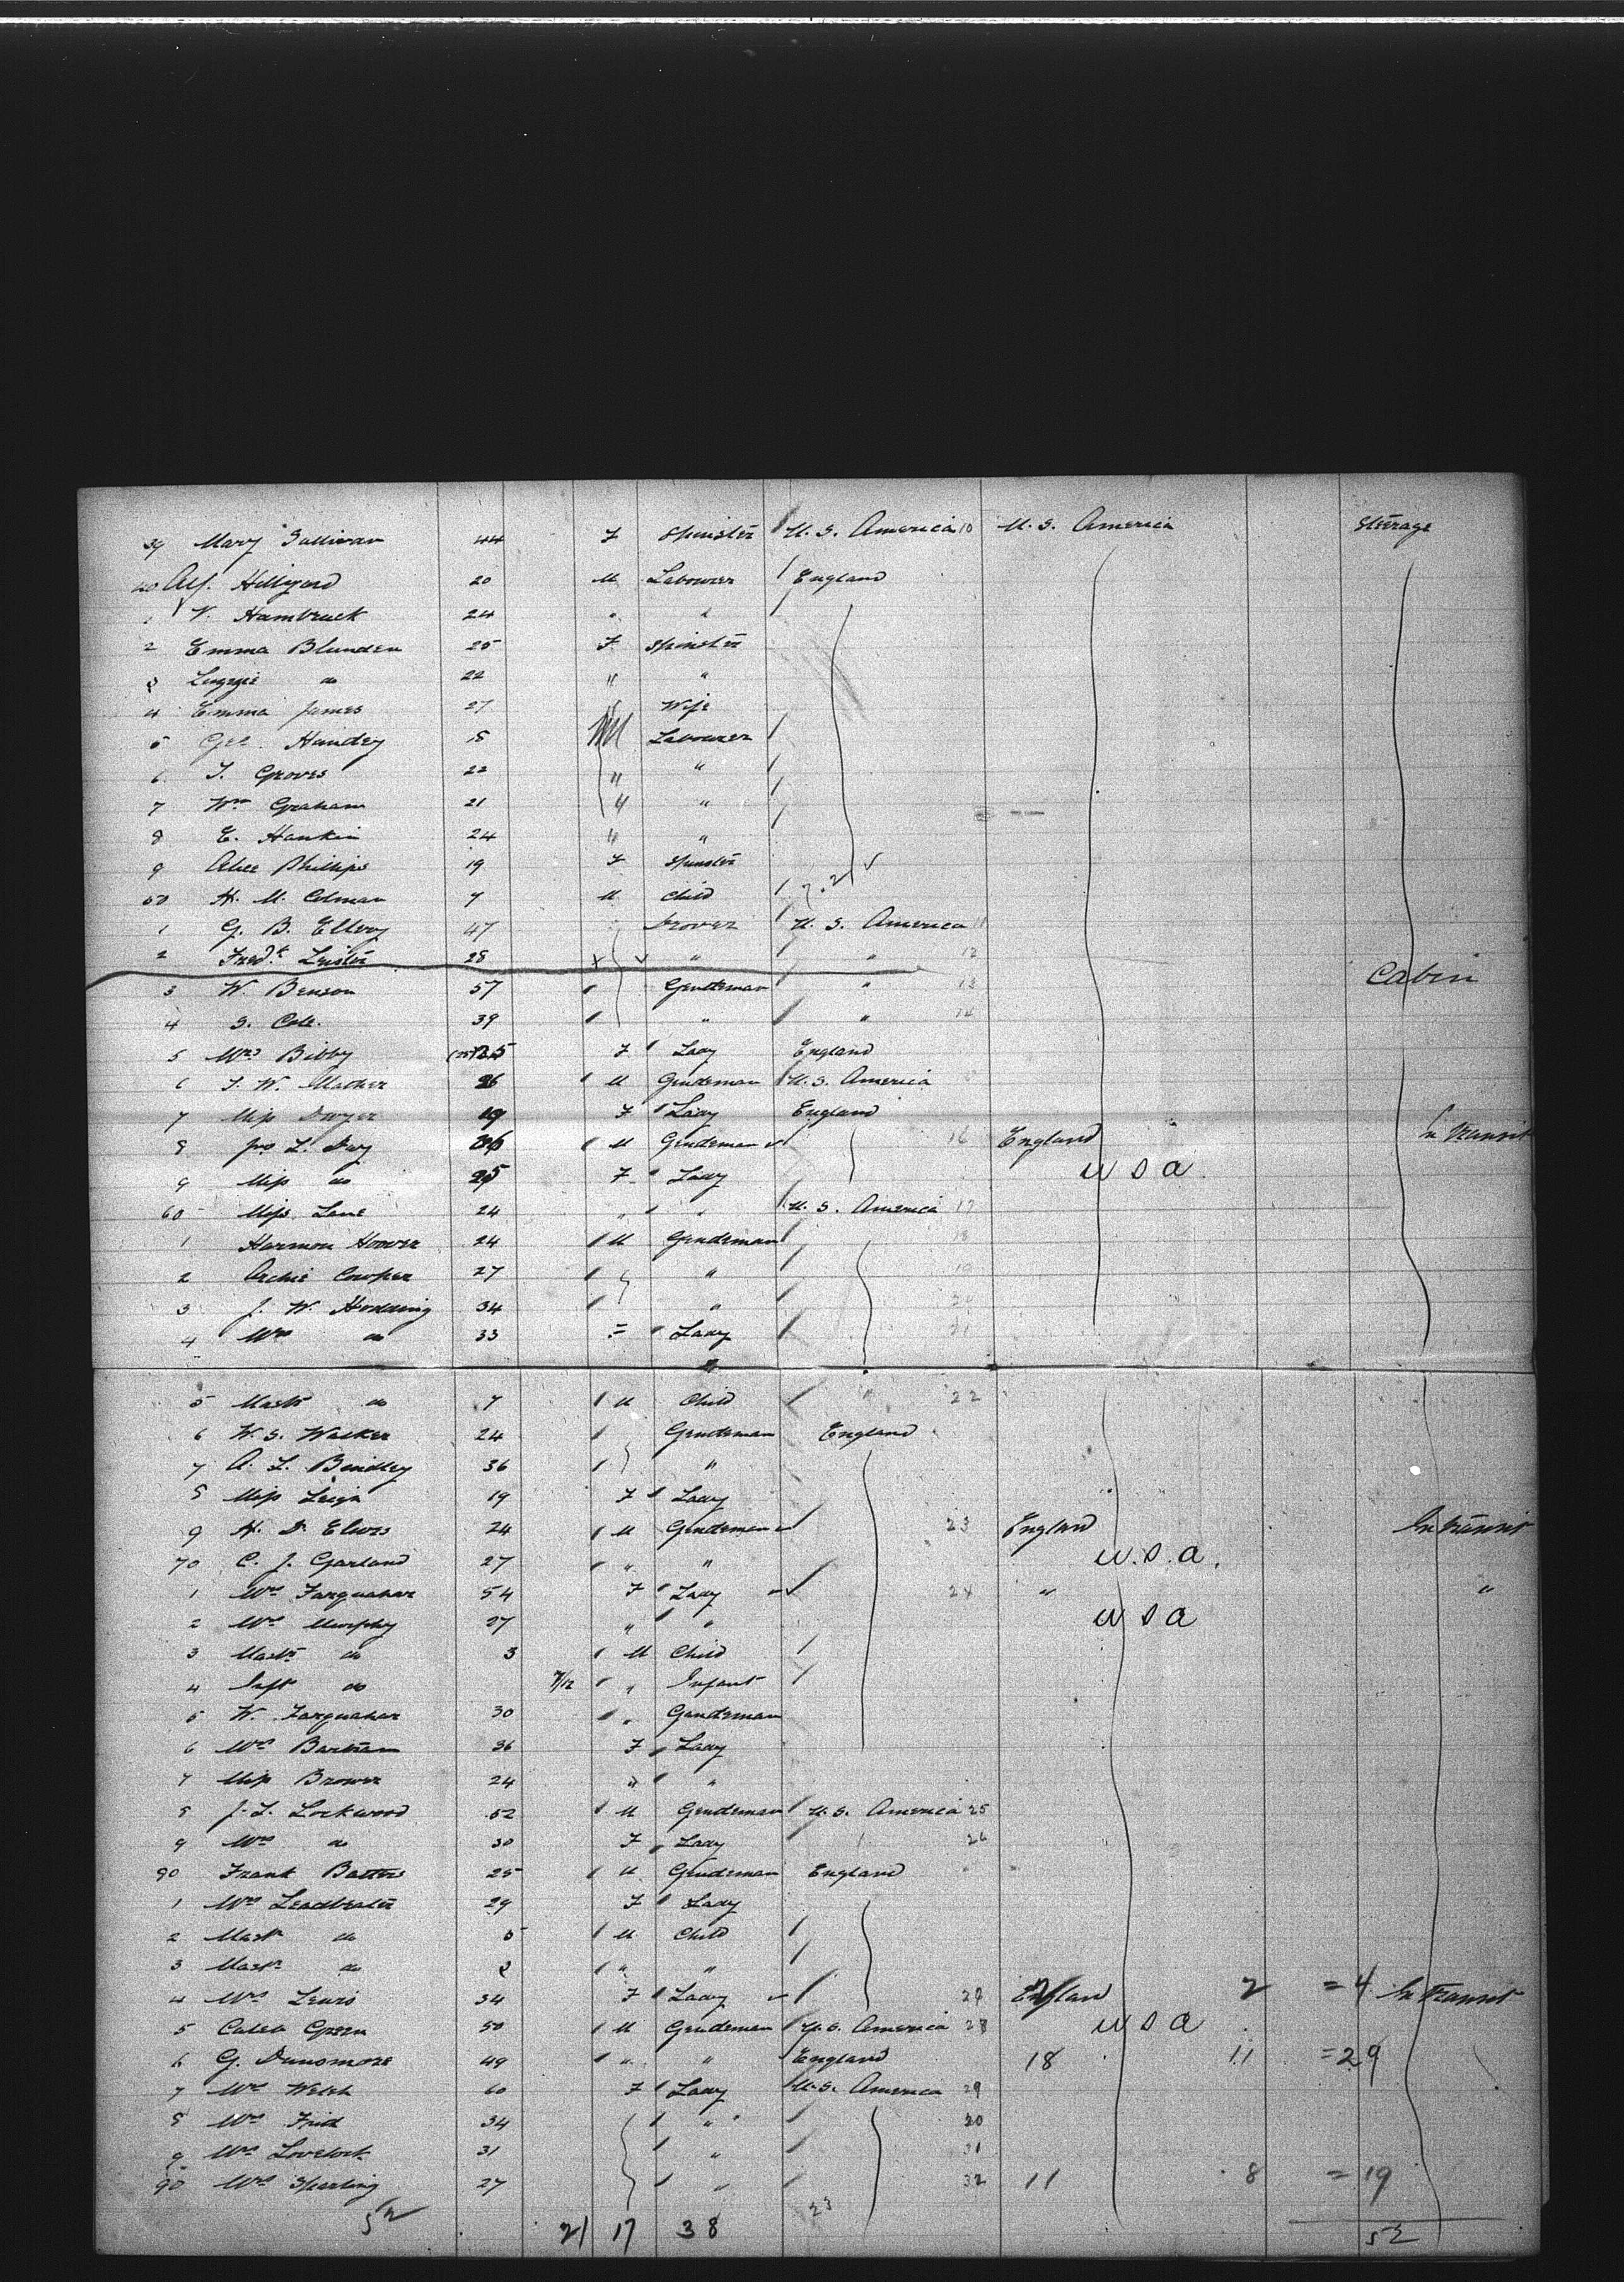 39 Mary Sullivan 44 F Spinster U.S. America 10 U.S. America Steerage
40 Alf. Hillyard 20 M Labourer England
1 W. Hambruck 24 " "
2 Emma Blunden 25 F Spinster
3 Lizzie do 22 " "
4 Emma James 27 " Wife
5 Geo. Handey 18 M Labourer
6 T. Groves 22 " "
7 Wm Graham 21 " "
8 E. Hankin 24 " "
9 Alice Phillips 19 F Spinster
50 H. M. Colman 7 M Child
1 G. B. Ellery 47 Drover U.S. America 11
2 Fredk Leister 28 " " 12
3 W. Benson 57 Gentleman " 13 Cabin
4 S. Cole. 39 " " 14
5 Mrs Bibby 25 F Lady England
6 T. W. Mather 26 M Gentleman U.S. America
7 Miss Dwyer 19 F Lady England
8 Jno L. Day 26 M Gentleman 16 England In Transit
9 Miss do 25 F Lady U S A
60 Miss Lane 24 " " U.S. America 17
1 Harmon Hoover 24 M Gentleman 18
2 Archie Cowper 27 "
3 J. W. Hodding 34 " 20
4 Mrs do 33 = Lady 21
5 Mastr do 7 M Child " 22
6 W. S. Walker 24 Gentleman England
7 A. L. Bindley 36 "
8 Miss Leigh 19 F Lady
9 H. D. Elwes 24 M Gentleman 23 England In Transit
70 C. J. Garland 27 " " U.S.A.
1 Mrs Farquahar 54 F Lady 24 " "
2 Mrs Murphy 27 " " U S A
3 Mastr do 3 M Child
4 Inft do 7/12 " Infant
5 W. Farquahar 30 " Gentleman
6 Mrs Bartram 36 F Lady
7 Miss Brower 24 " "
8 J. L. Lockwood 52 M Gentleman U.S. America 25
9 Mrs do 30 F Lady 26
90 Frank Batters 25 M Gentleman England
1 Mrs Leadbeater 29 F Lady
2 Mastr do 5 M Child
3 Mastr do 2 " "
4 Mrs Lewis 34 F Lady 27 England 2 =4 In Transit
5 Caleb Green 50 M Gentleman U.S. America 28 U S A
6 G. Dunsmore 49 " " England 18 11 =29
7 Mrs Welch 60 F Lady U.S. America 29
8 Mrs Frid 34 " 30
9 Mrs Lovelock 31 " 31
90 Mrs Sperling 27 " 32 11 8 =19
52 21 17 38 23 52